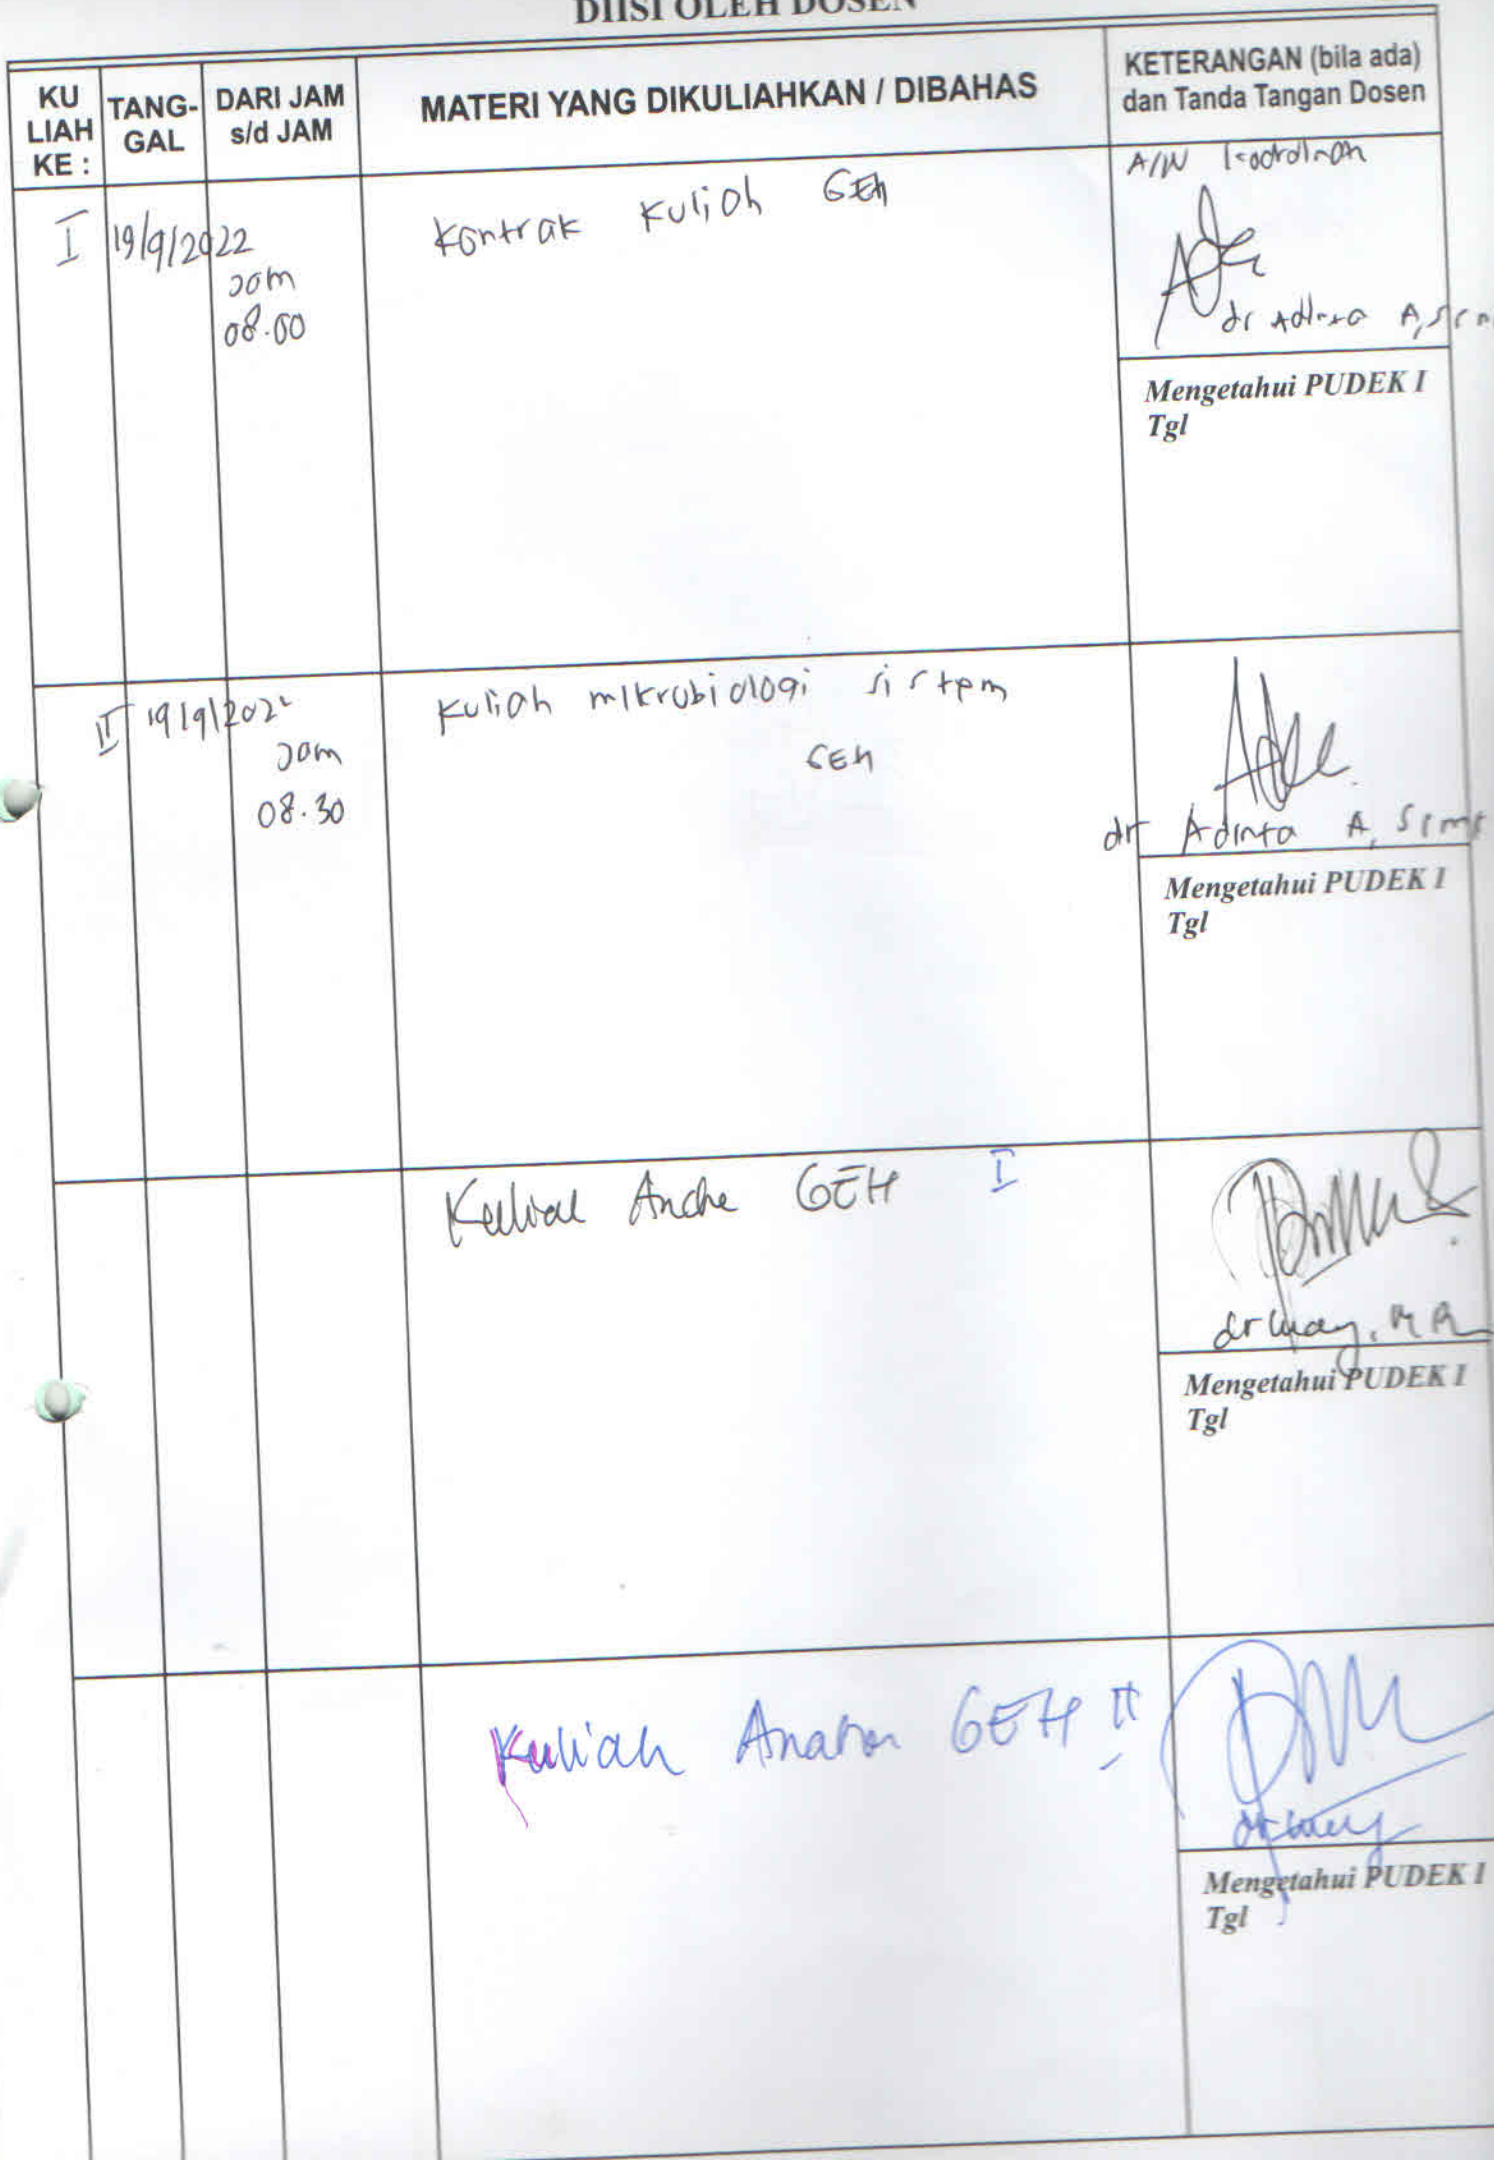 DIISI OLEH DOSEN
KU LIAH KE :
TANG-GAL
DARI JAM s/d JAM
MATERI YANG DIKULIAHKAN / DIBAHAS
KETERANGAN (bila ada) dan Tanda Tangan Dosen
I
19/9/2022
Jam
08.00
Kontrak Kuliah GEH
dr Adinta A,
Mengetahui PUDEK I
Tgl
II
19/9/2022
Jam
08.30
Kuliah mikrobiologi sistem
GEH
dr Adinta A,
Mengetahui PUDEK I
Tgl
GEH I
dr
Mengetahui PUDEK I
Tgl
Kuliah GEH II
dr
Mengetahui PUDEK I
Tgl